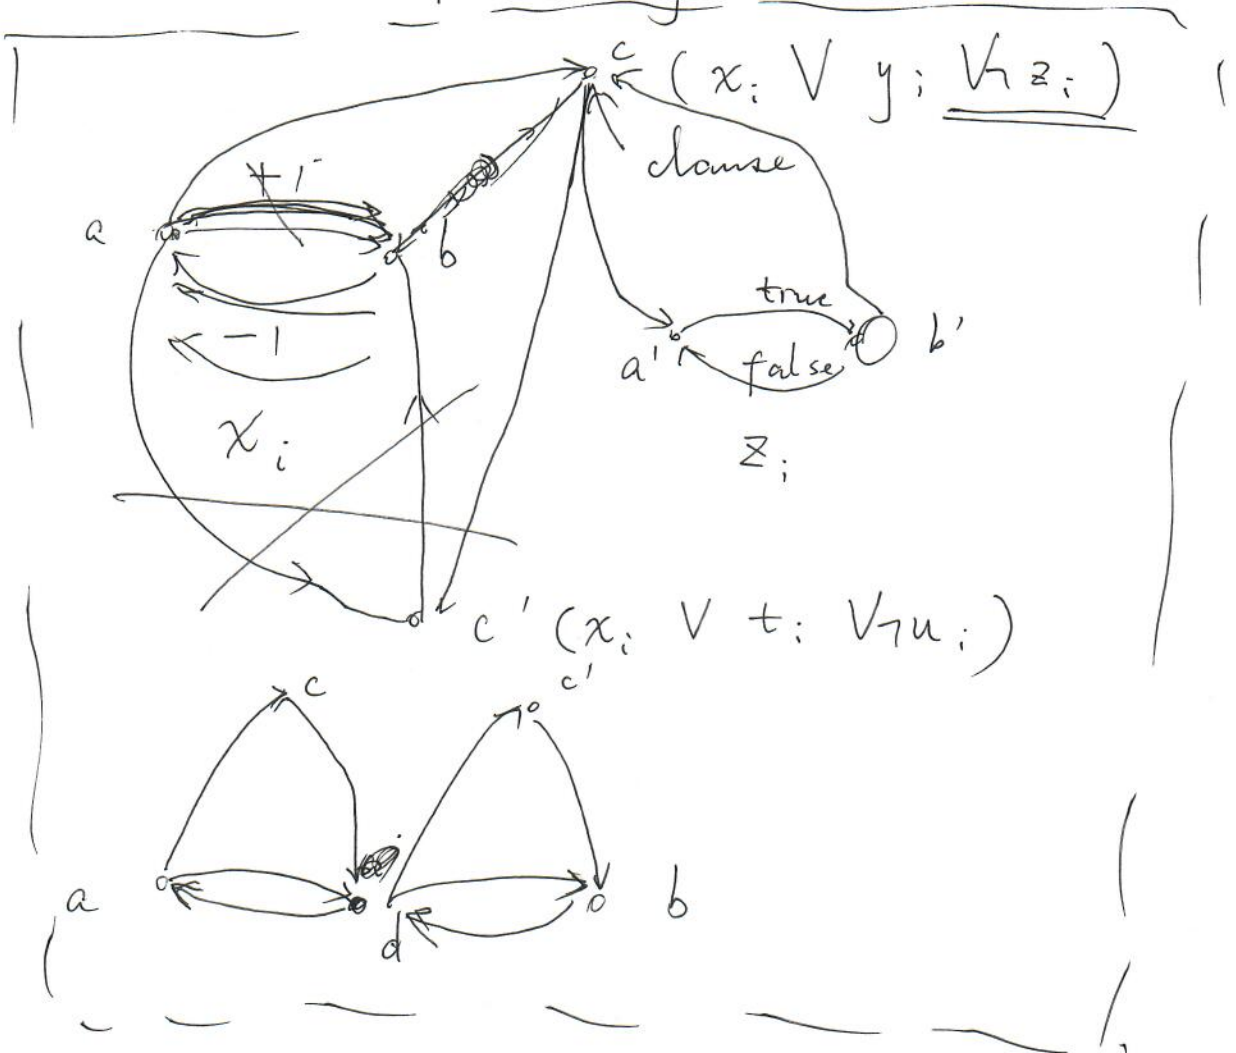 c (x_i ∨ y_i ∨¬z_i)
clause
+1
a
b
true
-1
a' false b'
x_i
z_i
c' (x_i ∨ t_i ∨¬u_i)
c c'
a d b